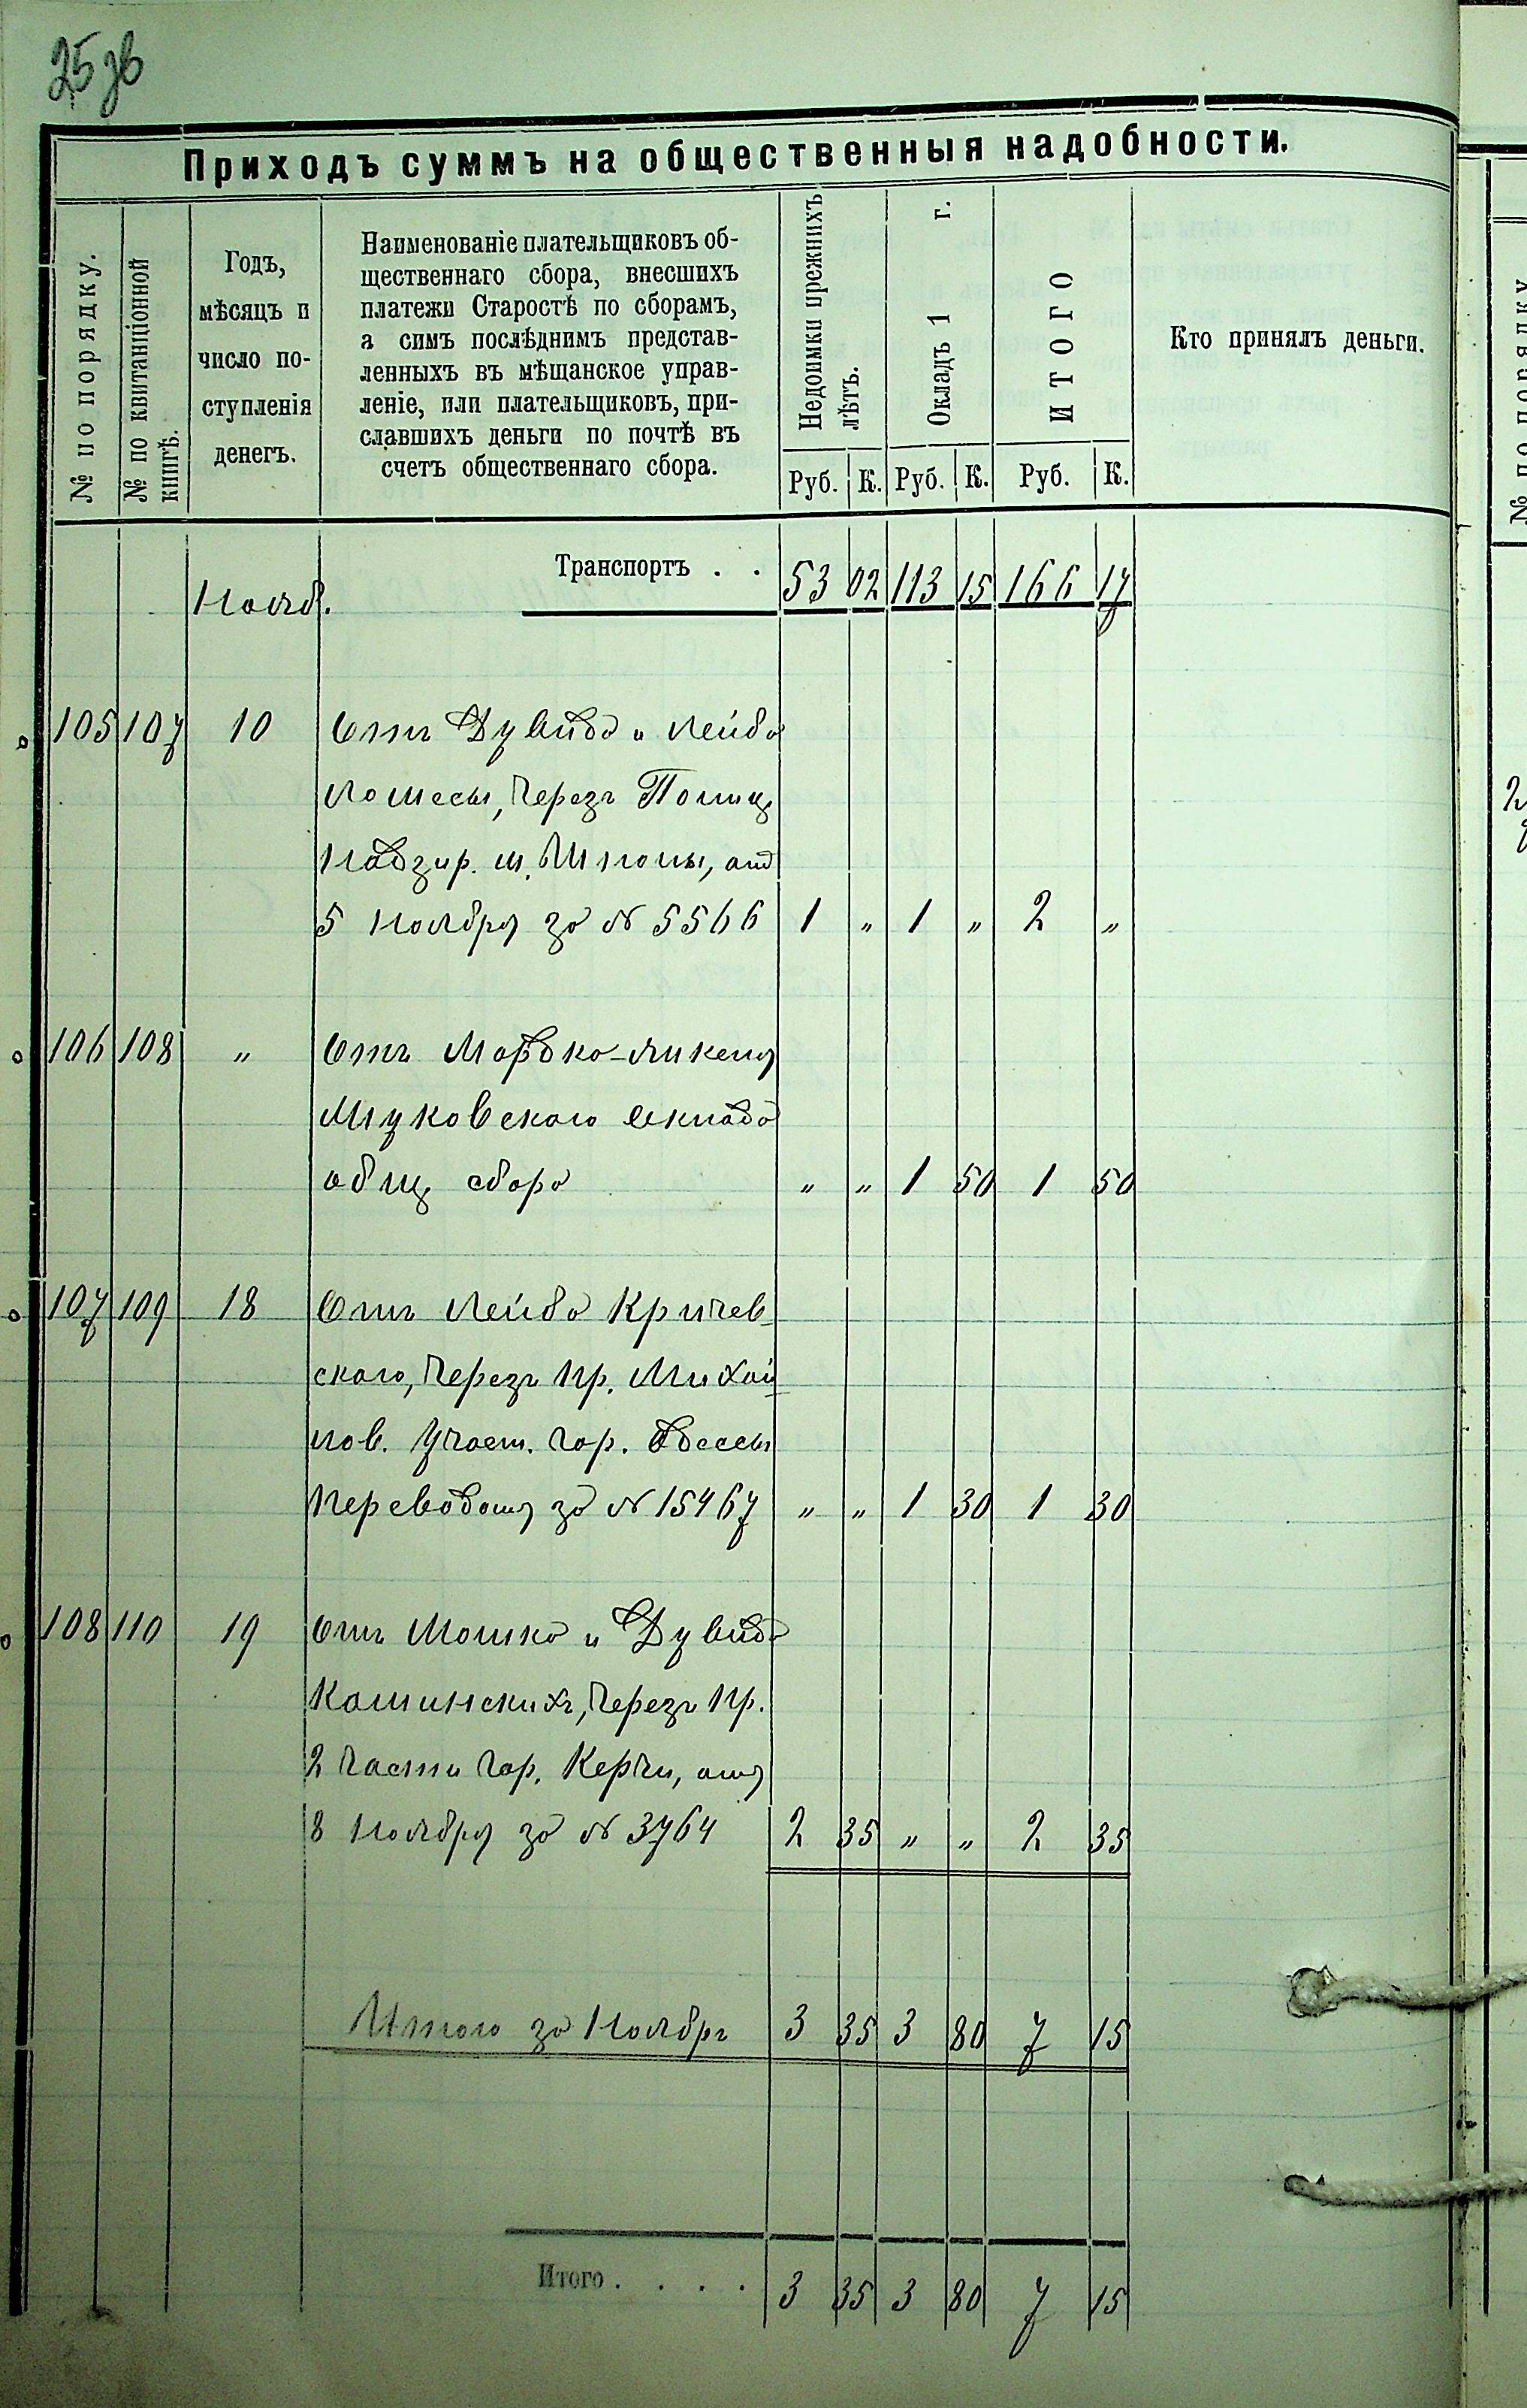 25 зв
Приходъ суммъ на общественныя надобности.
№ по порядку.
№ по квитанціонной книгѣ.
Годъ,
мѣсяцъ и
число по-
ступленія
денегъ.
Наименованіе плательщиковъ об-
щественнаго сбора, внесшихъ
платежи Старостѣ по сборамъ,
а симъ послѣднимъ представ-
ленныхъ въ мѣщанское управ-
леніе, или плательщиковъ, при-
славшихъ деньги по почтѣ въ
счетъ общественнаго сбора.
Недоимки прежнихъ лѣтъ.
Окладъ 1 г.
ИТОГО
Кто принялъ деньги.
Руб. К. Руб. К. Руб. К.
Нояб. Транспортъ . . 53 02 113 15 166 17
105 107 10 Отъ Дувида и Лейба
черезъ Полиц.
Надзир. м. Шполы, отъ
5 Ноября за № 5566 1 " 1 " 2 "
106 108 " Отъ
оклада
общ. сбора " " 1 50 1 50
107 109 18 Отъ Лейба Кричев-
скаго, черезъ Пр. Михай-
лов. Участ. гор. Одессы
Переводомъ за № 15467 " " 1 30 1 30
108 110 19 Отъ Мошка и Дувида
черезъ Пр.
2 части гор. Керчи, отъ
8 Ноября за № 3764 2 35 " " 2 35
Итого за Ноябрь 3 35 3 80 7 15
Итого . . . . 3 35 3 80 7 15
№ по порядку